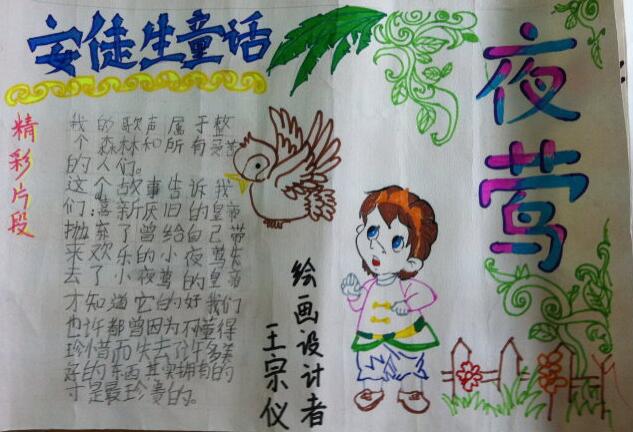 安徒生童话
夜莺
精彩片段
我的歌声属于整
个森林和所有受苦
的人们。
这个故事告诉我
们:喜新厌旧的皇帝
抛弃了曾给自己带
来欢乐的小夜莺失
去了小夜莺的皇帝
才知道它的好我们
也许都曾因为不懂得
珍惜而失去了许多美
好的东西其实拥有的
才是最珍贵的。
绘画设计者
王宗仪